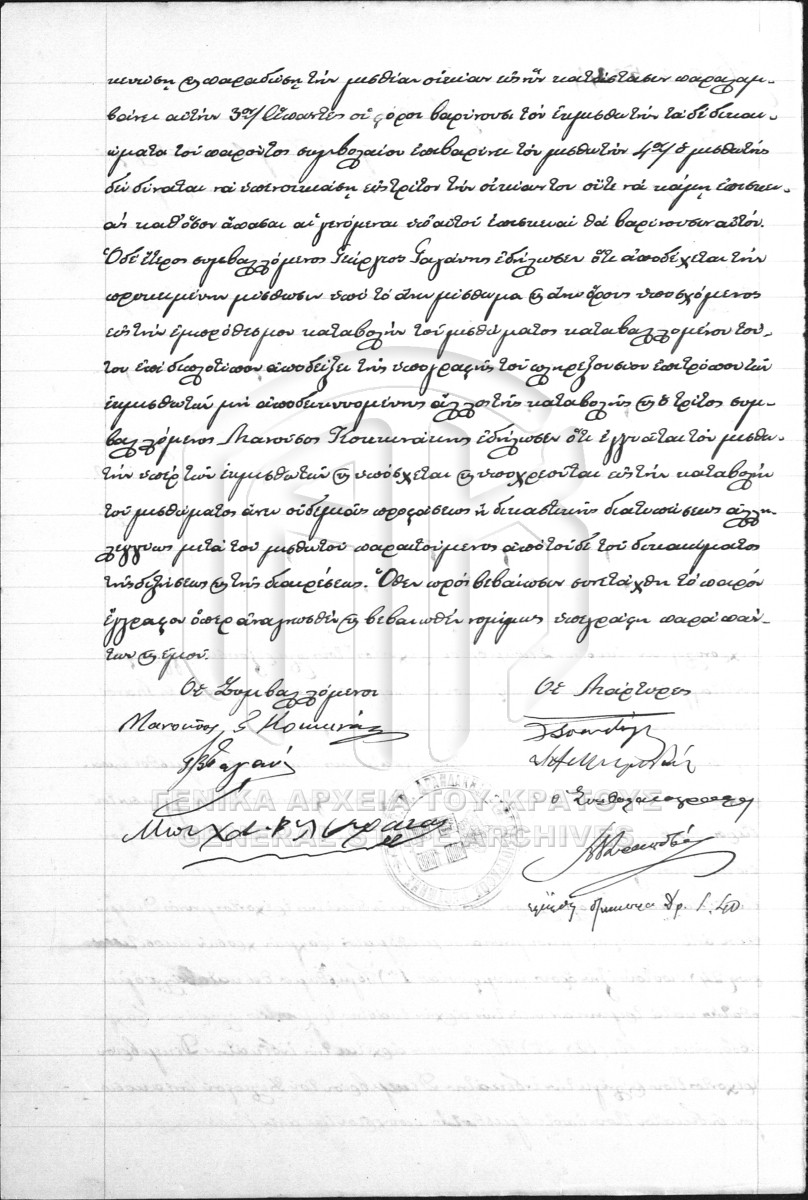 κενώση ϗ παραδώση τὴν μισθίαν οἰκίαν εἰς ἣν κατάστασιν παραλαμ-
βάνει αὐτήν 3ον/ Ἅπαντες οἱ φόροι βαρύνουσι τὸν ἐκμισθωτὴν τὰ δὲ δικαι-
ώματα τοῦ παρόντος συμβολαίου ἐπιβαρύνει τὸν μισθωτήν 4ον/ ὁ μισθωτὴς
δὲν δύναται νὰ ὑπενοικιάσῃ εἰς τρίτον τὴν οἰκίαν του οὔτε νὰ κάμῃ ἐπισκευ-
ὰς καθόσον ἅπασαι αἱ γενόμεναι ὑπ' αὐτοῦ ἐπισκευαὶ θὰ βαρύνουσιν αὐτόν.
Ὁ δὲ ἕτερος συμβαλλόμενος Γεώργιος Γαγάνης ἐδήλωσεν ὅτι ἀποδέχεται τὴν
προκειμένην μίσθωσιν ὑπὸ τὸ ἄνω μίσθωμα ϗ ἄνω ὅρους ὑποσχόμενος
εἰς τὴν ἐμπρόθεσμον καταβολὴν τοῦ μισθώματος καταβαλλομένου τού-
του ἐπὶ διπλοτύπου ἀποδείξει τῆς ὑπογραφῆς τοῦ πληρεξουσίου ἐπιτρόπου τῶν
ἐκμισθωτῶν μὴ ἀποδεικνυομένης ἄλλως τῆς καταβολῆς ϗ ὁ τρίτος συμ-
βαλλόμενος Μανοῦσος Κοκκινάκης ἐδήλωσεν ὅτι ἐγγυᾶται τὸν μισθω-
τὴν ὑπὲρ τῶν ἐκμισθωτῶν ϗ ὑπόσχεται ϗ ὑποχρεοῦται εἰς τὴν καταβολὴν
τοῦ μισθώματος ἄνευ οὐδεμιᾶς προφάσεως ἢ δικαστικῆς διατυπώσεως ἀλλη-
λεγγύως μετὰ τοῦ μισθωτοῦ παραιτούμενος ἀπὸ τοῦδε τοῦ δικαιώματος
τῆς διζήσεως ϗ τῆς διαιρέσεως. Ὅθεν πρὸς βεβαίωσιν συνετάχθη τὸ παρὸν
ἔγγραφον ὅπερ ἀναγνωσθὲν ϗ βεβαιωθὲν νομίμως ὑπεγράφη παρὰ πάν-
των ϗ ἐμοῦ.
Οἱ Συμβαλλόμενοι
Οἱ Μάρτυρες
Μανοῦσος Κοκκινάκης
ὁ Συμβολαιογράφος
Δρ. 1.40
ΓΕΝΙΚΑ ΑΡΧΕΙΑ ΤΟΥ ΚΡΑΤΟΥΣ
GENERAL STATE ARCHIVES